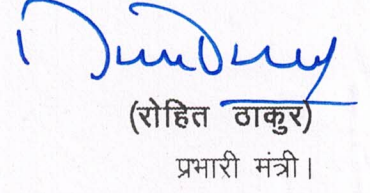 (रोहित ठाकुर)
प्रभारी मंत्री।